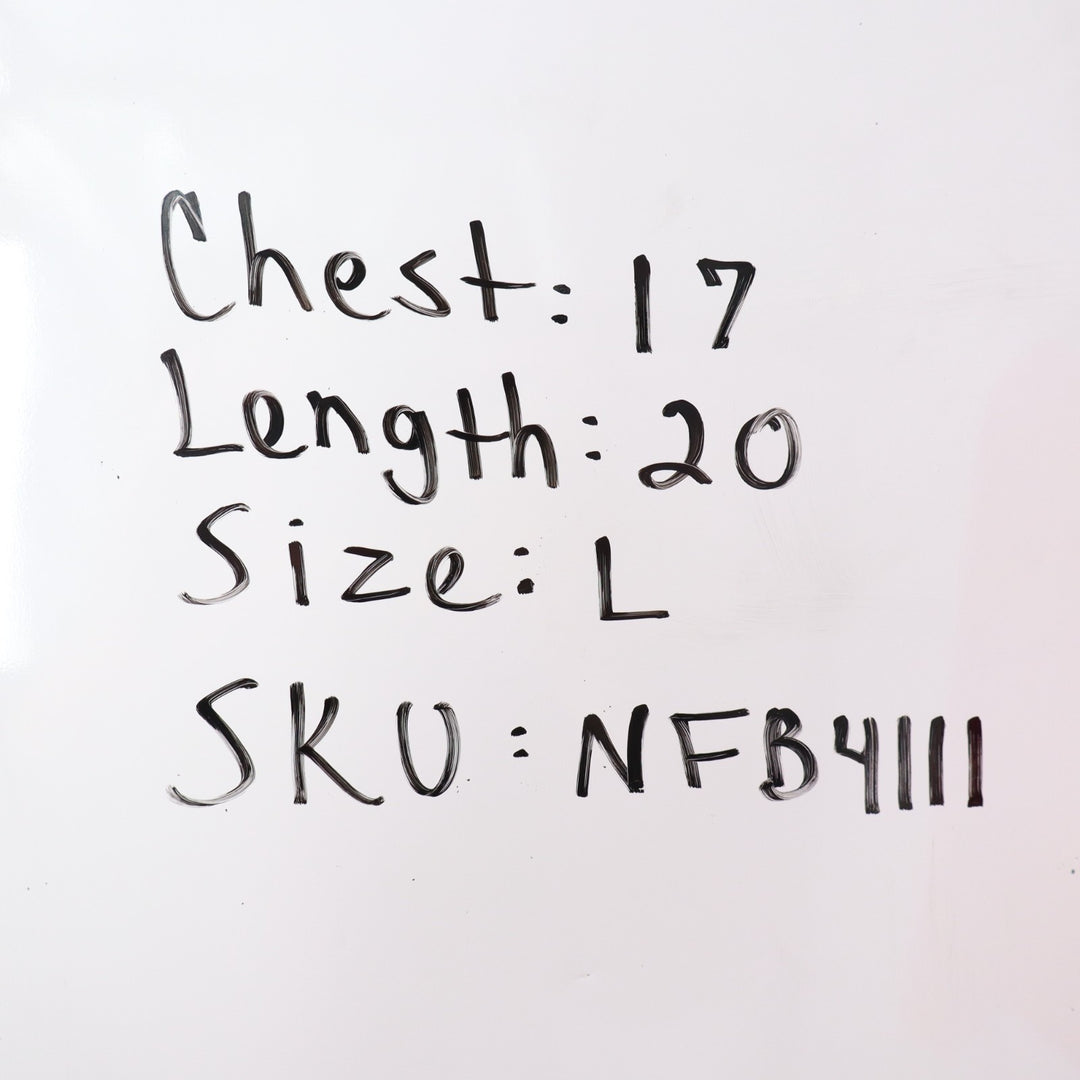 Chest: 17
Length: 20
Size: L
SKU: NFB4111